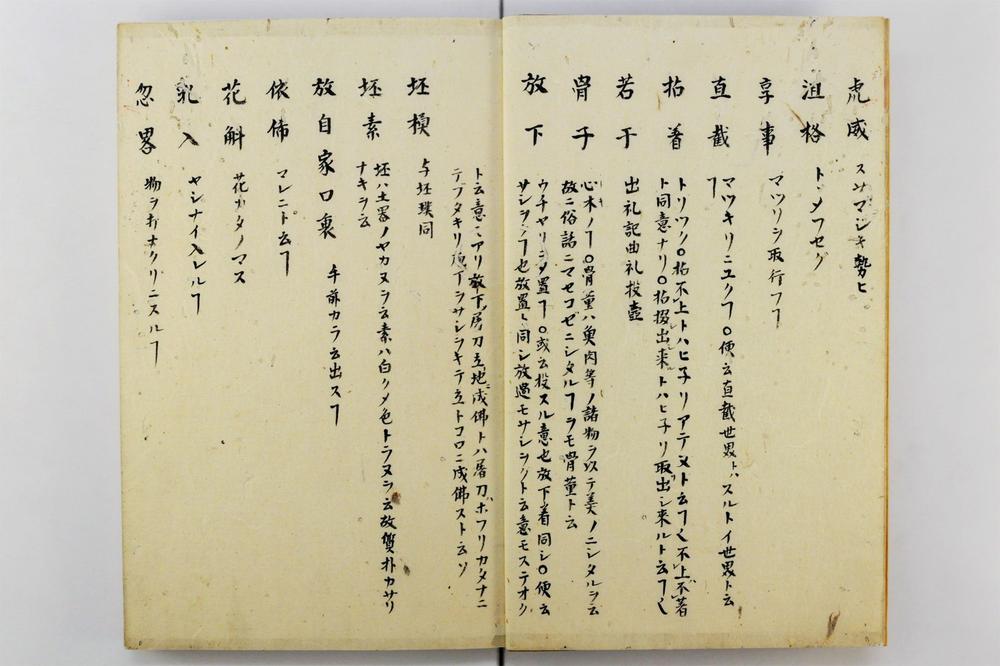 虎威 スサマシキ勢ヒ
沮格 トヽメフセグ
享事 マツリヲ取行フヿ
直截 マツキリニユクヿ〇便云直截世界トハスルトイ世界ト云
ヿ
拈着 トリツク〇拈不上トハヒ子リアテヌト云ヿ〱不上不著
ト同意ナリ〇拈掇出来トハヒ子リ取出シ来ルト云ヿ〱
若干 出礼記曲礼投壺
骨子 心木ノヿ〇骨董ハ魚肉等ノ諸物ヲ以テ羹ノニシタルヲ云
故ニ俗話ニマセコゼニシタルヿヲモ骨董ト云
放下 ウチヤリニシ置ヿ〇或云投スル意也放下着同シ〇便云
サシヲクヿ也放置ト同シ放過モサシヲクト云意モステオク
ト云意ミアリ放下屠刀立地成佛トハ屠刀ホフリカタナニ
テブタキリ庖丁ヲサシヲキテ立トコロニ成佛スト云ソ
坯模 与坯璞同
坯素 坯ハ土器ノヤカヌヲ云素ハ白クメ色トラヌヲ云故質朴カサリ
ナキヲ云
放自家口裏 手前カラ云出スヿ
依俙 マレニト云ヿ
花斛 花カタノマス
乳入 ヤシナイ入レルヿ
忽畧 物ヲオオクリニスルヿ